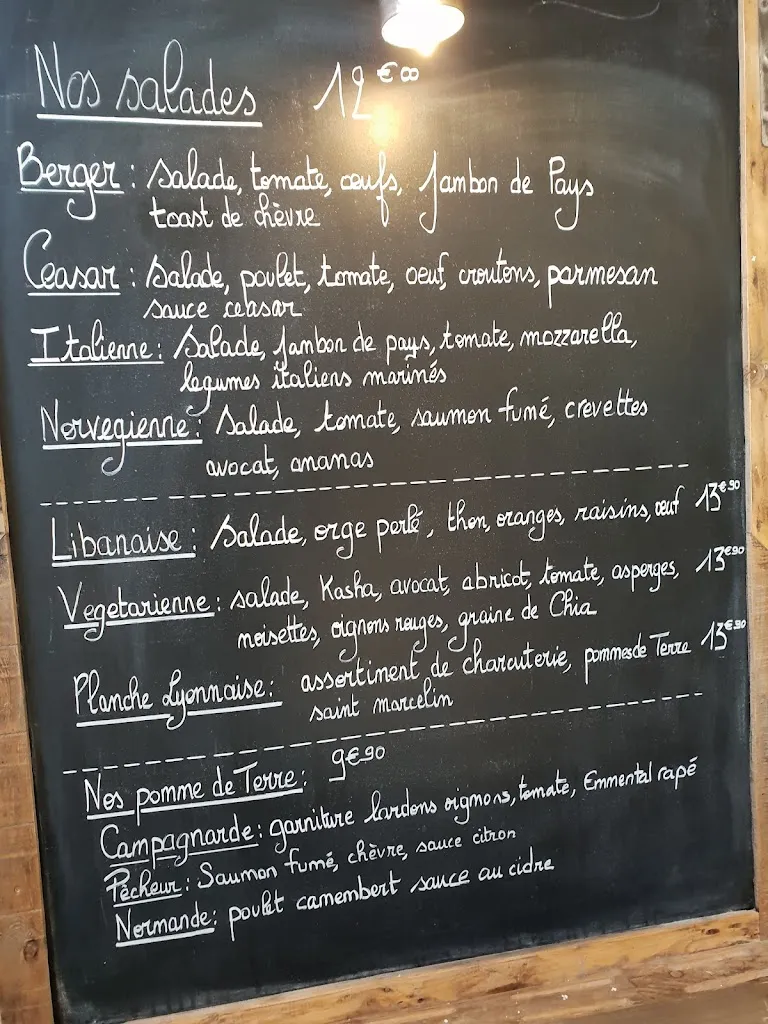 Nos salades 12€00
Berger : Salade, tomate, œufs, Jambon de Pays
toast de chèvre
Ceasar : Salade, poulet, tomate, oeuf, croutons, parmesan
sauce ceasar
Italienne : Salade, Jambon de pays, tomate, mozzarella,
legumes italiens marinés
Norvegienne : Salade, tomate, saumon fumé, crevettes
avocat, ananas
Libanaise : Salade, orge perlé, thon, oranges, raisins, œuf 13€90
Vegetarienne : salade, Kasha, avocat, abricot, tomate, asperges, 13€90
noisettes, oignons rouges, graine de Chia
Planche Lyonnaise : assortiment de charcuterie, pommes de Terre 13€90
saint marcelin
Nos pomme de Terre : 9€90
Campagnarde : garniture lardons oignons, tomate, Emmental rapé
Pêcheur : Saumon fumé, chèvre, sauce citron
Normande : poulet camembert sauce au cidre